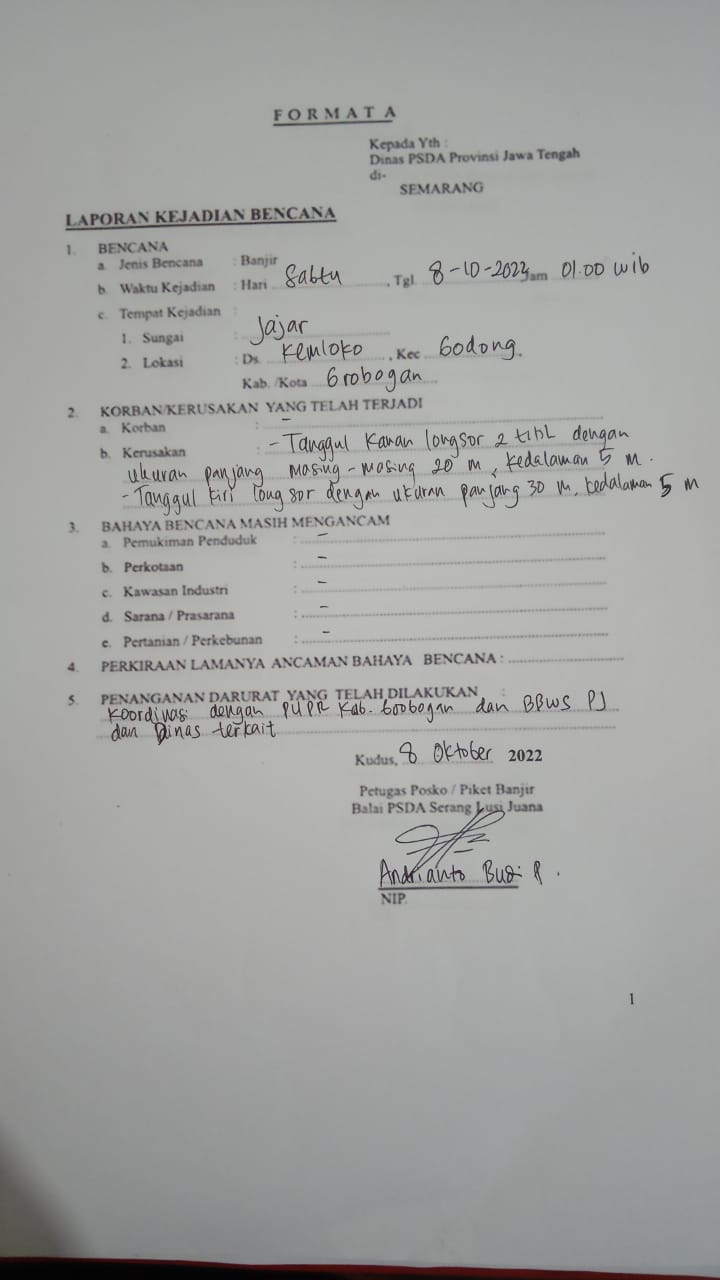 FORMAT A
Kepada Yth :
Dinas PSDA Provinsi Jawa Tengah
di-
SEMARANG
LAPORAN KEJADIAN BENCANA
1. BENCANA
a. Jenis Bencana : Banjir
b. Waktu Kejadian : Hari Sabtu, Tgl 8-10-2022 Jam 01.00 wib
c. Tempat Kejadian :
1. Sungai : Jajar
2. Lokasi : Ds. Kemloko, Kec Godong.
Kab. /Kota Grobogan
2. KORBAN/KERUSAKAN YANG TELAH TERJADI
a. Korban : -
b. Kerusakan : - Tanggul Kanan longsor 2 titik dengan
ukuran panjang masing-masing 20 m, kedalaman 5 m.
- Tanggul kiri longsor dengan ukuran panjang 30 m, kedalaman 5 m
3. BAHAYA BENCANA MASIH MENGANCAM
a. Pemukiman Penduduk : -
b. Perkotaan : -
c. Kawasan Industri : -
d. Sarana / Prasarana : -
e. Pertanian / Perkebunan : -
4. PERKIRAAN LAMANYA ANCAMAN BAHAYA BENCANA :
5. PENANGANAN DARURAT YANG TELAH DILAKUKAN :
Koordinasi dengan PUPR Kab. Grobogan dan BBWS PJ
dan Dinas terkait
Kudus, 8 Oktober 2022
Petugas Posko / Piket Banjir
Balai PSDA Serang Lusi Juana
Andrianto Budi P.
NIP.
1